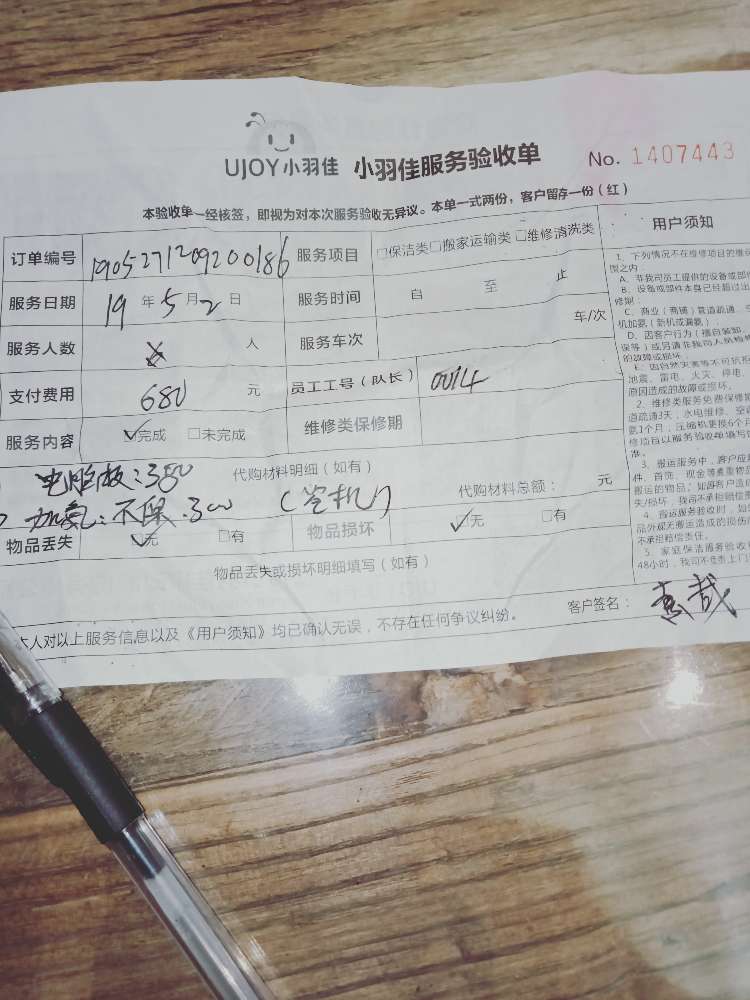 UJOY小羽佳 小羽佳服务验收单 No. 1407443
本验收单一经核签，即视为对本次服务验收无异议。本单一式两份，客户留存一份（红）
订单编号 1905271209200186 服务项目 □保洁类□搬家运输类 □维修清洗类
服务日期 19 年 5 月 2 日 服务时间 自 至 止
服务人数 人 服务车次 车/次
支付费用 680 元 员工工号（队长） 0014
服务内容 ☑完成 □未完成 维修类保修期
代购材料明细（如有） 代购材料总额： 元
电脑板：380
加氟：不保：300 （签机）
物品丢失 ☑无 □有 物品损坏 ☑无 □有
物品丢失或损坏明细填写（如有）
本人对以上服务信息以及《用户须知》均已确认无误，不存在任何争议纠纷。 客户签名：
用户须知
1、下列情况不在维修项目的维
围之内
A、非我司员工提供的设备或部
B、设备或部件本身已经超过出
修期；
C、商业（商铺）管道疏通、空
机加氨（新机或漏氨）；
D、因客户行为（擅自装卸、
误等）或另请非我司人员检修
的故障或损坏；
E、因自然灾害等不可抗拒
地震、雷电、火灾、停电、
原因造成的故障或损坏。
2、维修类服务免费保修期
道疏通3天，水电维修、空调
氨1个月；压缩机更换6个月
修项目以服务验收单填写
准。
3、搬运服务中，客户应
件、首饰、现金等贵重物品
搬运的物品；如因客户造成
失/损坏，我司不承担赔偿责
4、搬运服务验收时，如
品外观无搬运造成的损伤
不承担赔偿责任。
5、家庭保洁服务验收
48小时，我司不负责上门